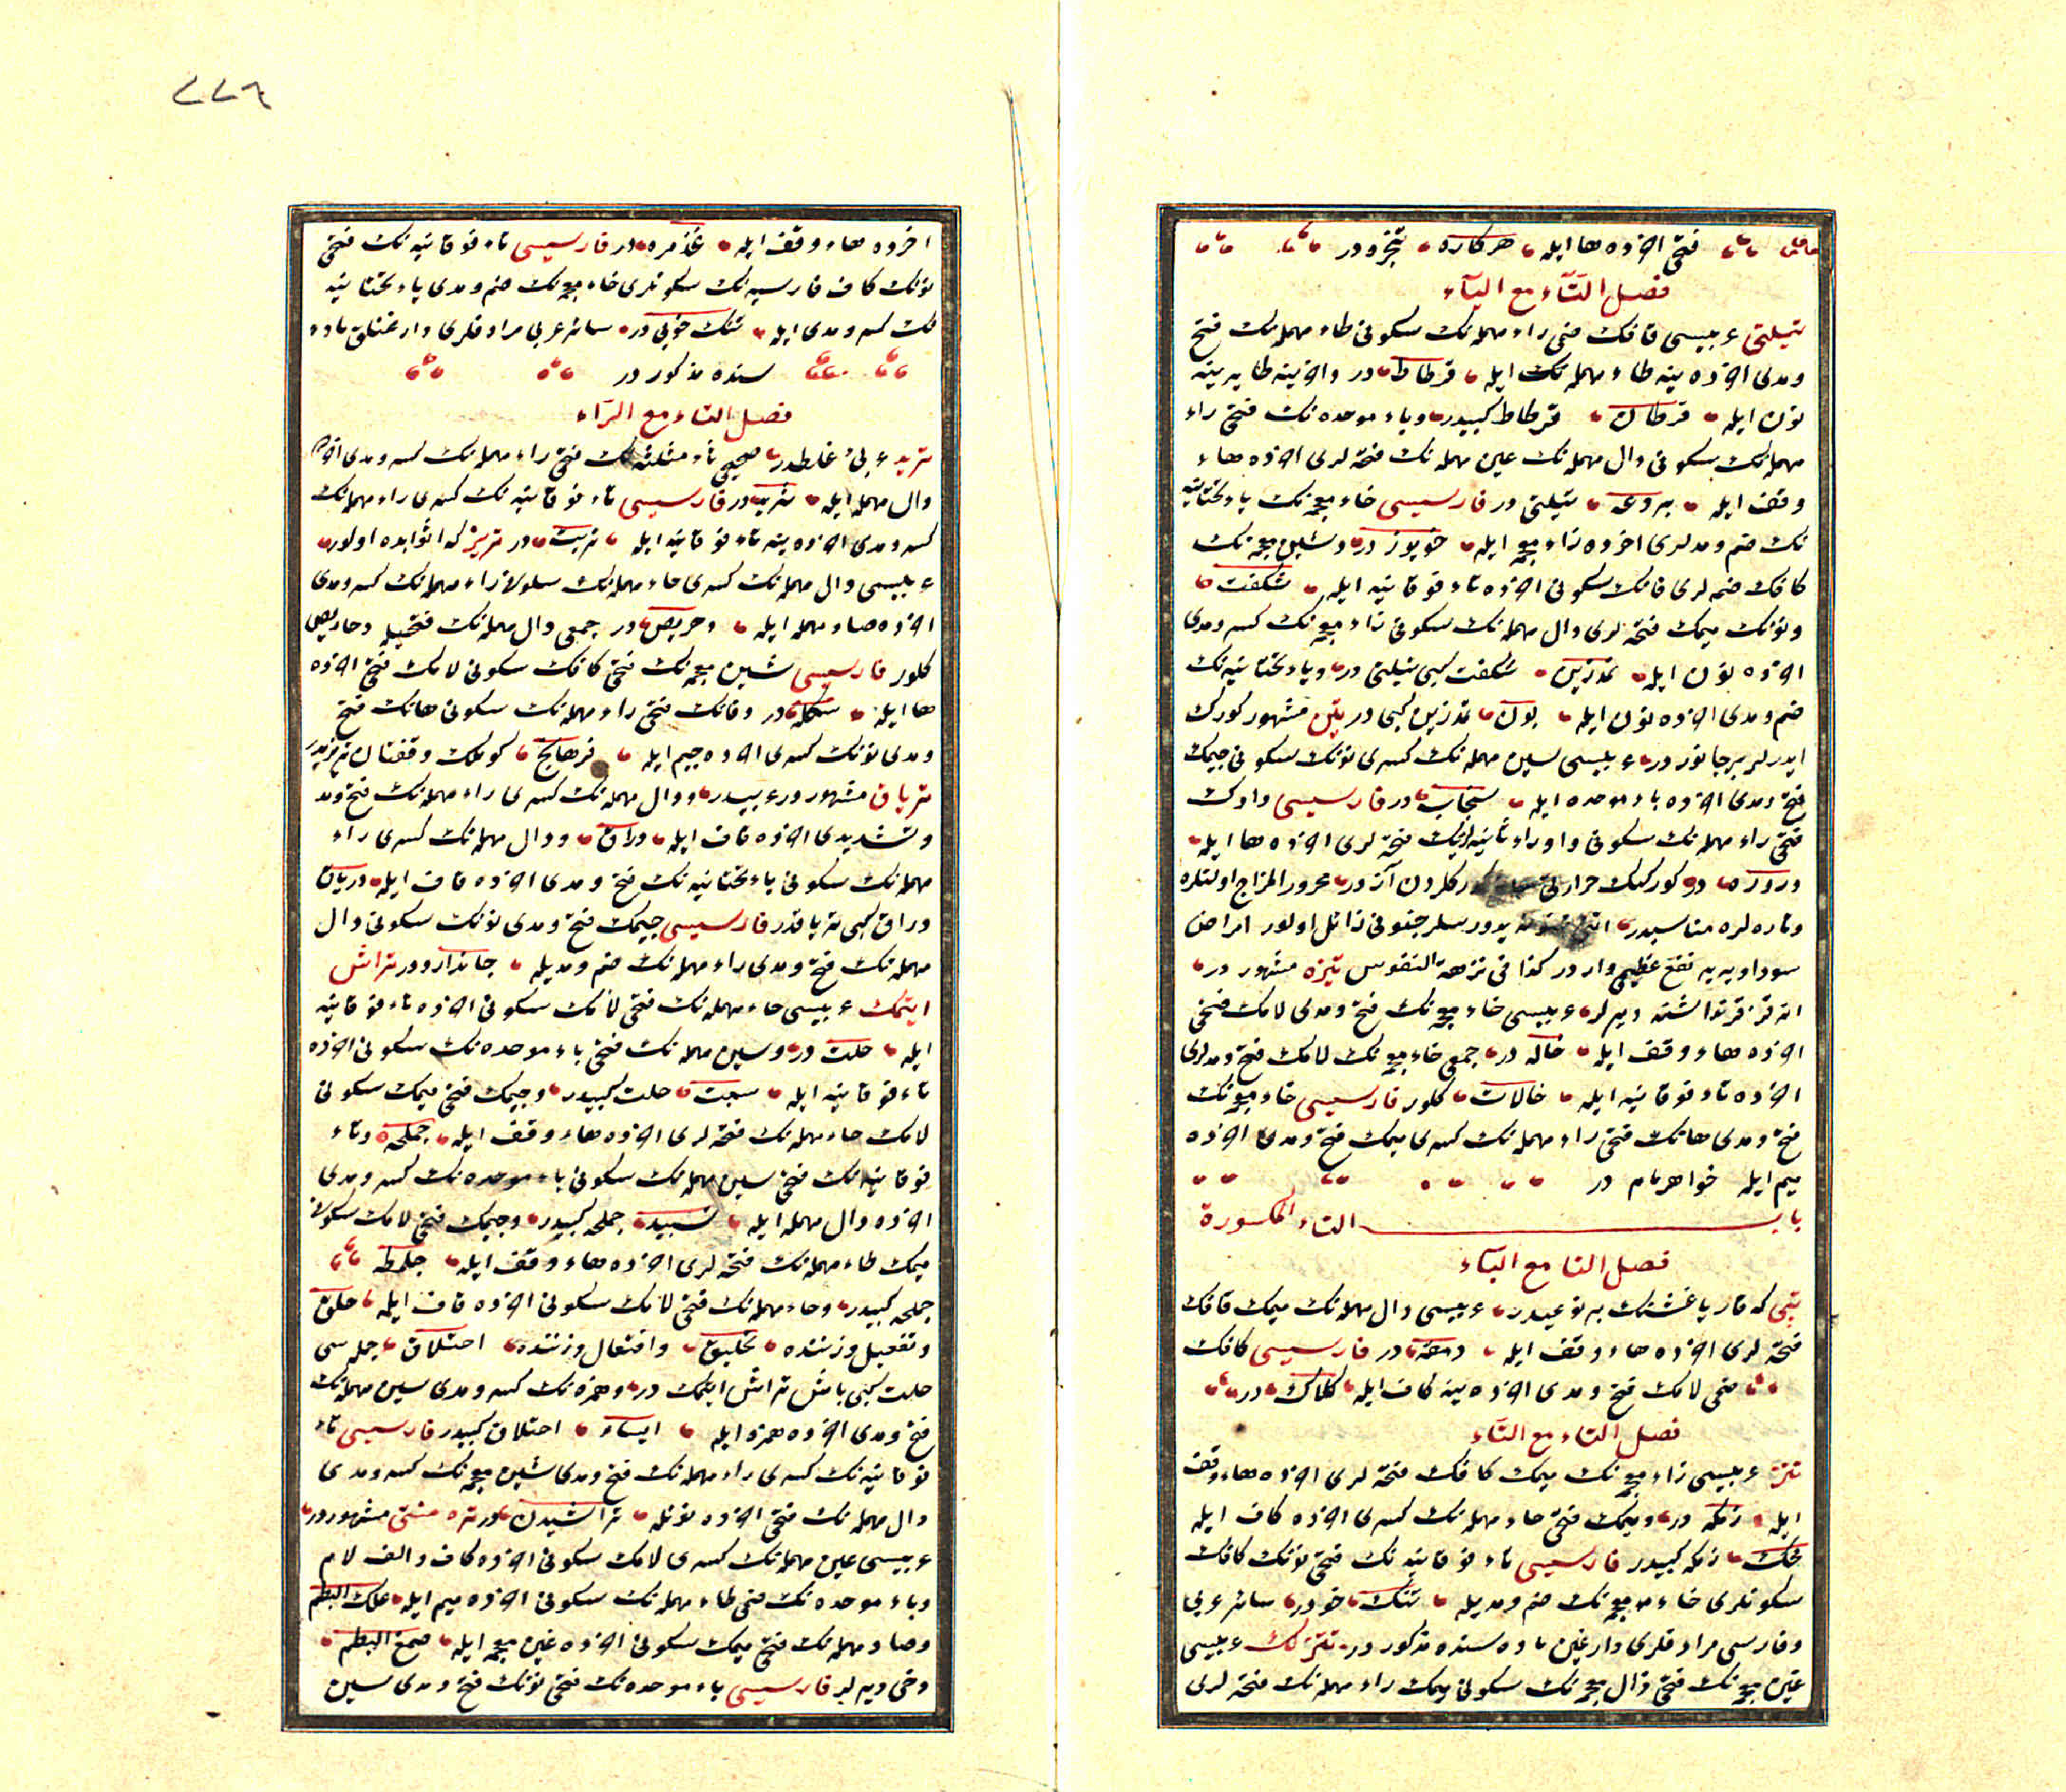 فتحى اخرده ها ايله هركاره تنجره در
فصل التاء مع الياء
تيلتى عربيسى قافك ضمى راء مهمله نك سكونى طاء مهمله نك فتح
ومدى اخرده ينه طاء مهمله نك ايله قرطاط در واخرينه طا يرينه
نون ايله قرطان قرطاط كبيدر وباء موحده نك فتحى راء
مهمله نك سكونى دال مهمله نك عين مهمله نك فتحه لرى اخرده هاء
وقف ايله بردعه تيلتى در فارسيسى خاء معجمه نك ياء تحتانيه
نك ضم ومدلرى اخرده زاء معجمه ايله خويوز در وشين معجمه نك
كافك ضمه لرى فانك سكونى اخرده تاء فوقانيه ايله شكفت
ونونك ميمك فتحه لرى دال مهمله نك سكونى زاء معجمه نك كسر ومدى
اخرده نون ايله نمدزين شكفت كبى تيلتى در وياء تحتانيه نك
ضم ومدى اخرده نون ايله يون نمدزين كبى در تين مشهور كورك
ايدرلر بر جانور در عربيسى سين مهمله نك كسرى نونك سكونى جيمك
فتح ومدى اخرده باء موحده ايله سنجاب در فارسيسى واوك
فتحى راء مهمله نك سكونى واو راء ثانيه نك فتحه لرى اخرده ها ايله
وروره در كوركنك حرارتى كوركلردن آز در محرور المزاج اولنلره
وتازه لره مناسبدر يدورسلر جنونى زائل اولور امراض
سوداويه يه نفع عظيمى واردر كذا فى نزهة النفوس تيزه مشهور در
انه قز قرنداشنه ديرلر عربيسى خاء معجمه نك فتح ومدى لامك فتحى
اخرده هاء وقف ايله خاله در جمعى خاء معجمه نك لامك فتح ومدلرى
اخرده تاء فوقانيه ايله خالات كلور فارسيسى خاء معجمه نك
فتح ومدى هانك فتحى راء مهمله نك كسرى ميمك فتح ومدى اخرده
ميم ايله خواهرمام در
باب التاء المكسورة
فصل التا مع الباء
تپى كه قار ياغشنك بر نوعيدر عربيسى دال مهمله نك ميمك قافك
فتحه لرى اخرده هاء وقف ايله دمقه در فارسيسى كافك
ضمى لامك فتح ومدى اخرده ينه كاف ايله كلاك در
فصل التاء مع التاء
تتز عربيسى زاء معجمه نك ميمك كافك فتحه لرى اخرده هاء وقف
ايله زمكه در وميمك فتحى حاء مهمله نك كسرى اخرده كاف ايله
محك زمكه كبيدر فارسيسى تاء فوقانيه نك فتحى نونك كافك
سكونلرى خاء معجمه نك ضم ومديله تنك خو در سائر عربى
وفارسى مرادفلرى دارغين ماده سنده مذكور در تتزلك عربيسى
غين معجمه نك فتحى ذال معجمه نك سكونى ميمك راء مهمله نك فتحه لرى
٢٢٦
اخرده هاء وقف ايله غذمره در فارسيسى تاء فوقانيه نك فتحى
نونك كاف فارسيه نك سكونلرى خاء معجمه نك ضم ومدى ياء تحتانيه
نك كسر ومدى ايله تنك خويى در سائر عربى مرادفلرى دارغنلق ماده
سنده مذكور در
فصل التاء مع الراء
تريد عربى غلطدر صحيحى ثاء مثلثه نك فتحى راء مهمله نك كسر ومدى اخرده
دال مهمله ايله ثريد در فارسيسى تاء فوقانيه نك كسرى راء مهمله نك
كسر ومدى اخرده ينه تاء فوقانيه ايله تريت در تريز كه اثوابده اولور
عربيسى دال مهمله نك كسرى خاء مهمله نك سكونى راء مهمله نك كسر ومدى
اخرده صاد مهمله ايله دحريص در جمعى دال مهمله نك فتحيله دحاريص
كلور فارسيسى شين معجمه نك فتحى كافك سكونى لامك فتحى اخرده
ها ايله شكله در وفانك فتحى راء مهمله نك سكونى هانك فتح
ومدى نونك كسرى اخرده جيم ايله فرهانج كوملك وقفتان تريزيدر
ترياق مشهور در عربيدر ودال مهمله نك كسرى راء مهمله نك فتح ومد
وتشديدى اخرده قاف ايله دراق ودال مهمله نك كسرى راء
مهمله نك سكونى ياء تحتانيه نك فتح ومدى اخرده قاف ايله درياق
دراق كبى ترياقدر فارسيسى جيمك فتح ومدى نونك سكونى دال
مهمله نك فتح ومدى راء مهمله نك ضم ومديله جاندارو در تراش
ايتمك عربيسى حاء مهمله نك فتحى لامك سكونى اخرده تاء فوقانيه
ايله حلت در وسين مهمله نك فتحى باء موحده نك سكونى اخرده
تاء فوقانيه ايله سبت حلت كبيدر وجيمك فتحى ميمك سكونى
لامك حاء مهمله نك فتحه لرى اخرده هاء وقف ايله جملحه وتاء
فوقانيه نك فتحى سين مهمله نك سكونى باء موحده نك كسر ومدى
اخرده دال مهمله ايله تسبيد جملحه كبيدر وجيمك فتحى لامك سكونى
ميمك طاء مهمله نك فتحه لرى اخرده هاء وقف ايله جلمطه
جملحه كبيدر وحاء مهمله نك فتحى لامك سكونى اخرده قاف ايله حلق
وتفعيل وزننده تحليق وافتعال وزننده احتلاق جمله سى
حلت كبى باش تراش ايتمك در وهمزه نك كسر ومدى سين مهمله نك
فتح ومدى اخرده همزه ايله ايساء احتلاق كبيدر فارسيسى تاء
فوقانيه نك كسرى راء مهمله نك فتح ومدى شين معجمه نك كسر ومدى
دال مهمله نك فتحى اخرده نونله تراشيدن در تره منتى مشهور در
عربيسى عين مهمله نك كسرى لامك سكونى اخرده كاف والف لام
وباء موحده نك ضمى طاء مهمله نك سكونى اخرده ميم ايله علك البطم
وصاد مهمله نك فتحى ميمك سكونى اخرده غين معجمه ايله صمغ البطم
دخى ديرلر فارسيسى باء موحده نك فتحى نونك فتح ومدى سين